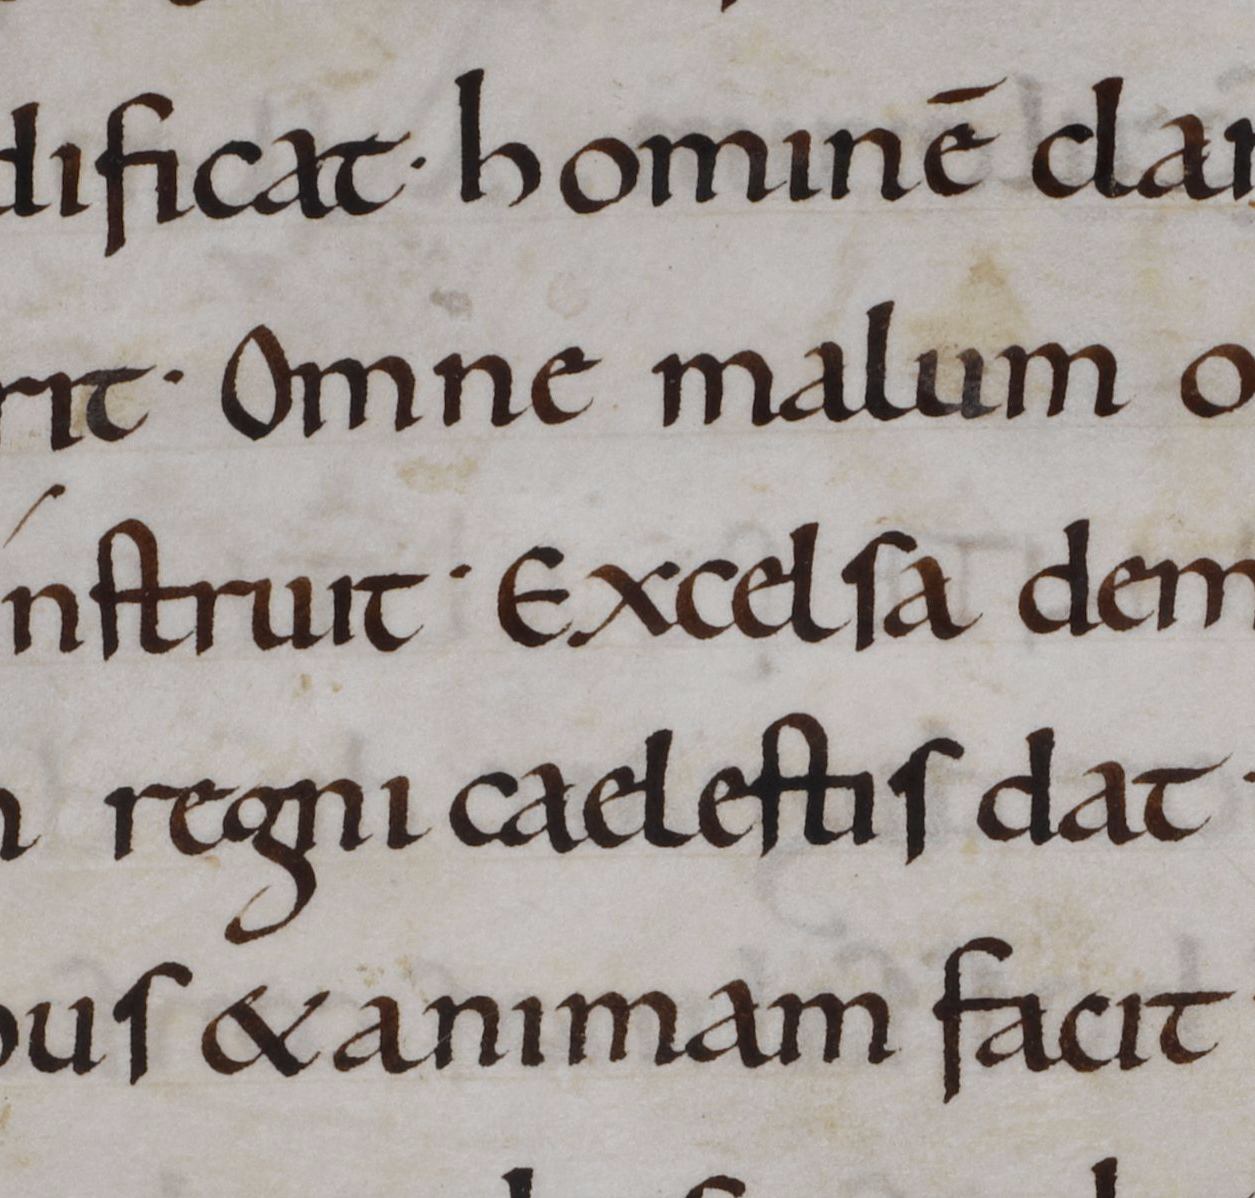 dificat· hominē clar
rit· Omne malum o
nstruit· Excelsa dem
regni caelestis dat
bus & animam facit